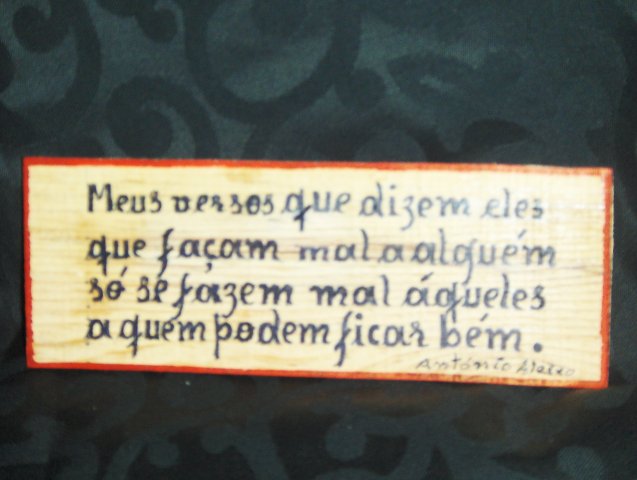 Meus versos que dizem eles
que façam mal a alguém
só se fazem mal áqueles
a quem podem ficar bém.
António Aleixo